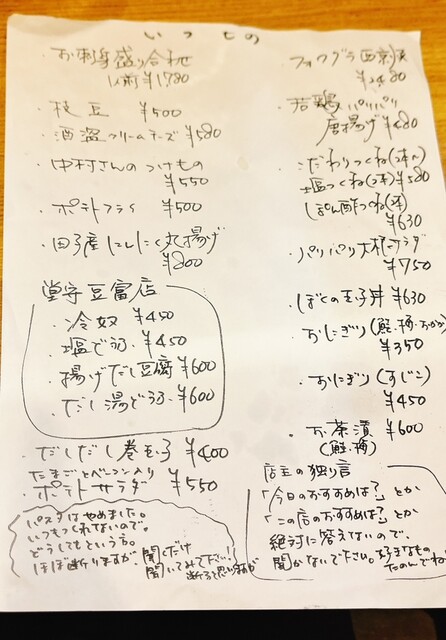 いつもの
お刺身盛り合わせ
1人前 ¥1,780
・枝豆 ¥500
・酒盗クリームチーズ ¥580
・中村さんのつけもの
¥550
・ポテトフライ ¥500
・田子産にんにく丸揚げ
¥800
豆富店
・冷奴 ¥450
・塩どうふ ¥450
・揚げだし豆腐 ¥600
・だし湯どうふ ¥600
・だしだし巻玉子 ¥400
たまごとベーコン入り
・ポテトサラダ ¥550
パスタはやめました。
いつもつくれないので。
どうしてもという方。
ほぼ断りますが、聞くだけ
聞いてみて下さい!
断ると思いますが
フォワグラ西京
・若鶏パリパリ
唐揚げ ¥480
・こだわりつくね(2本〜)
塩つくね(2本) ¥580
ぽん酢つくね(2本)
¥630
・パリパリ大根サラダ
¥750
・ぼくの玉子丼 ¥630
・おにぎり(鮭・梅・おかか)
¥350
・おにぎり(すじこ)
¥450
・お茶漬 ¥600
(鮭、梅)
店主の独り言
「今日のおすすめは?」とか
「この店のおすすめは?」とか
絶対に答えないので、
聞かないで下さい。好きなもの
たのんでね!